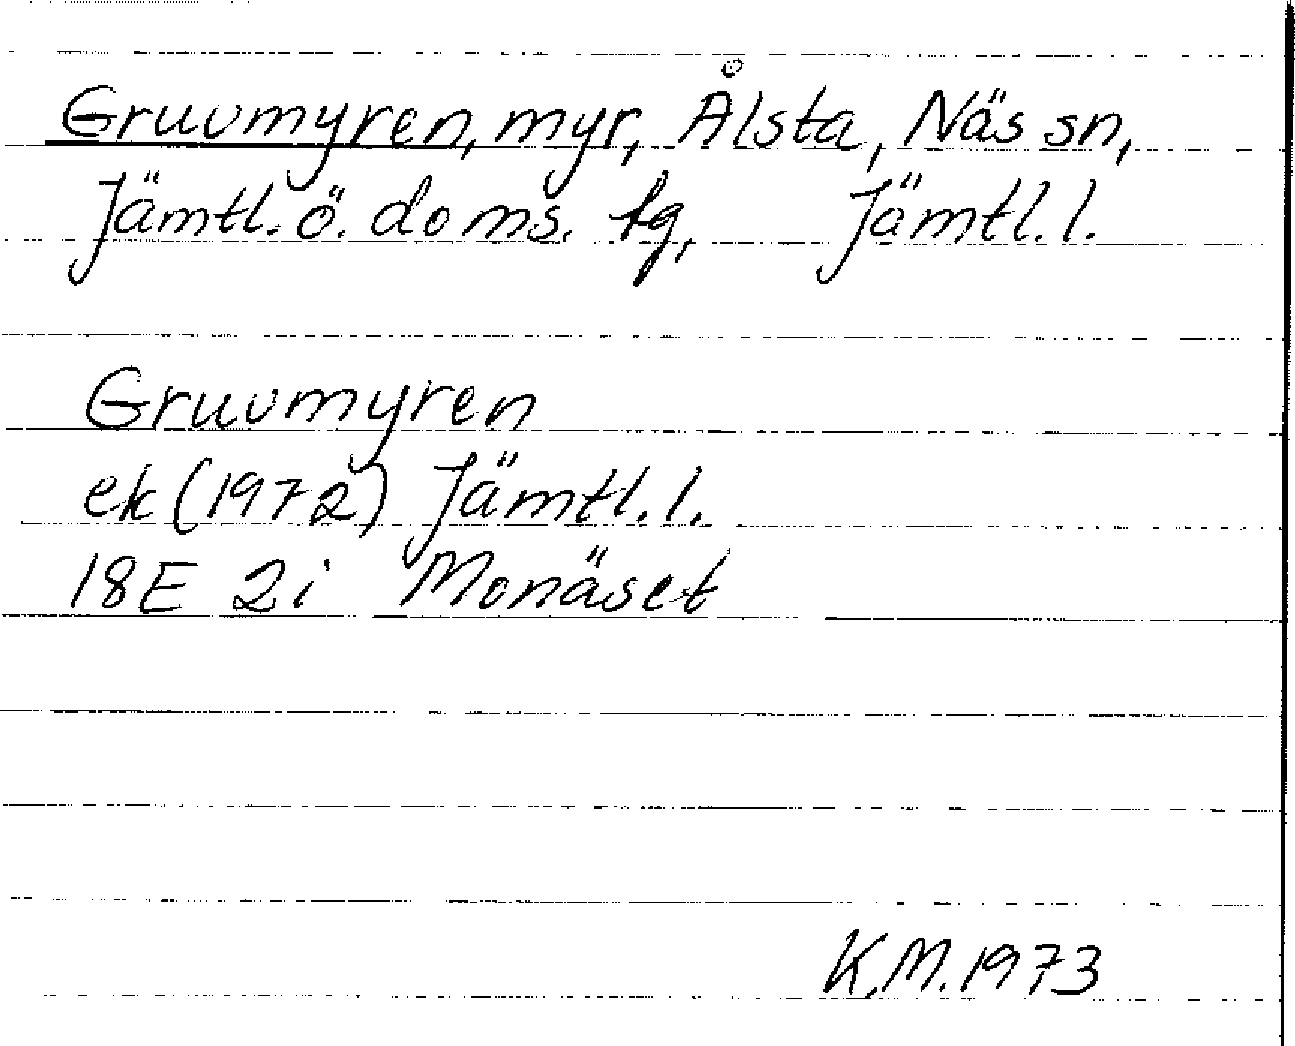 Gruvmyren, myr, Ålsta, Näs sn,
Jämtl. ö. doms. tg, Jämtl. l.
Gruvmyren
ek (1972) Jämtl. l.
18E 2i Monäset
K.M. 1973